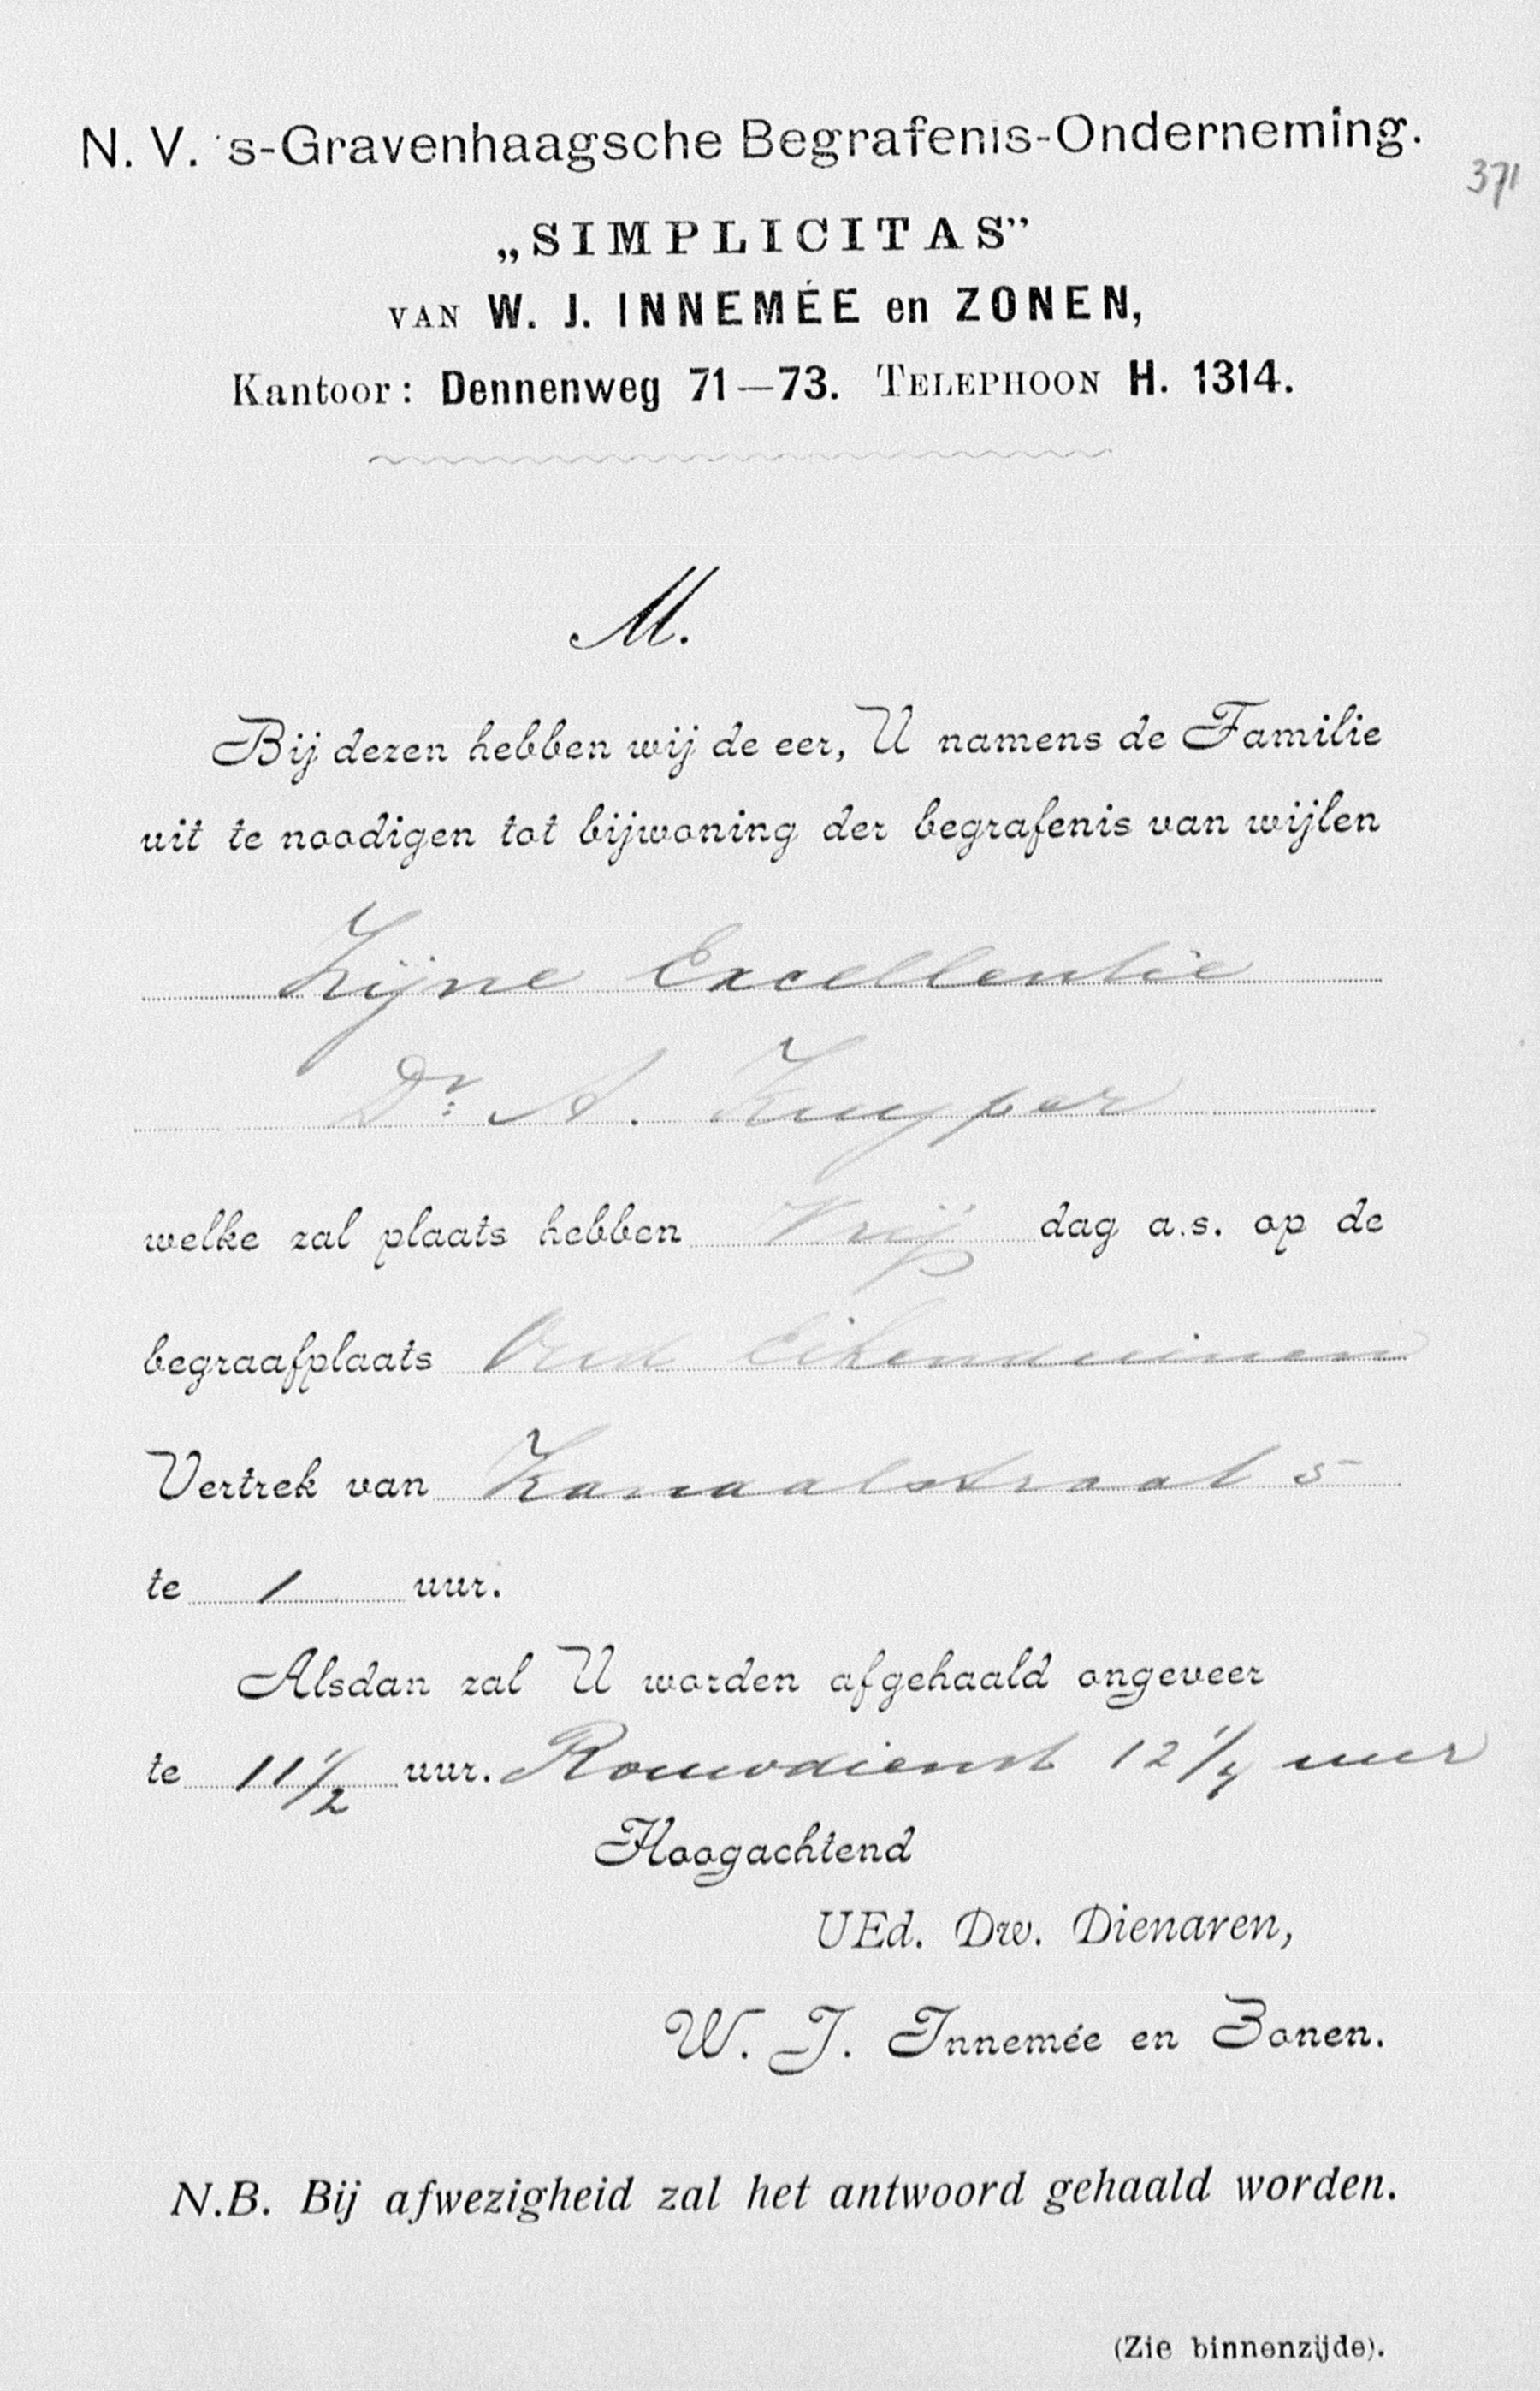 N. V. 's-Gravenhaagsche Begrafenis-Onderneming.
371
„SIMPLICITAS”
VAN W. J. INNEMÉE en ZONEN,
Kantoor: Dennenweg 71—73. TELEPHOON H. 1314.
M.
Bij dezen hebben wij de eer, U namens de Familie
uit te noodigen tot bijwoning der begrafenis van wijlen
Zijne Excellentie
Dr. A. Kuyper
welke zal plaats hebben Vrij dag a.s. op de
begraafplaats Oud Eikenduinen
Vertrek van Kanaalstraat 5
te 1 uur.
Alsdan zal U worden afgehaald ongeveer
te 11 1/2 uur. Rouwdienst 12 1/4 uur
Hoogachtend
UEd. Dw. Dienaren,
W. J. Innemée en Zonen.
N.B. Bij afwezigheid zal het antwoord gehaald worden.
(Zie binnenzijde).